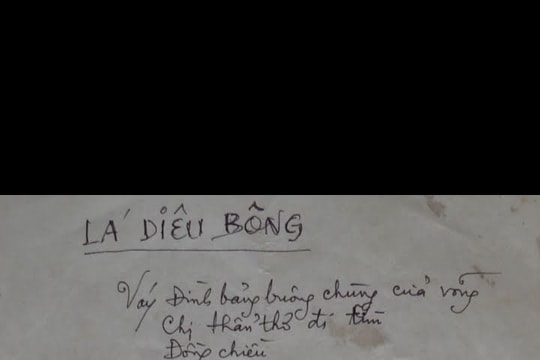 LÁ DIÊU BÔNG
Váy Đình bảng buông chùng cửa võng
Chị thẩn thơ đi tìm
Đồng chiều